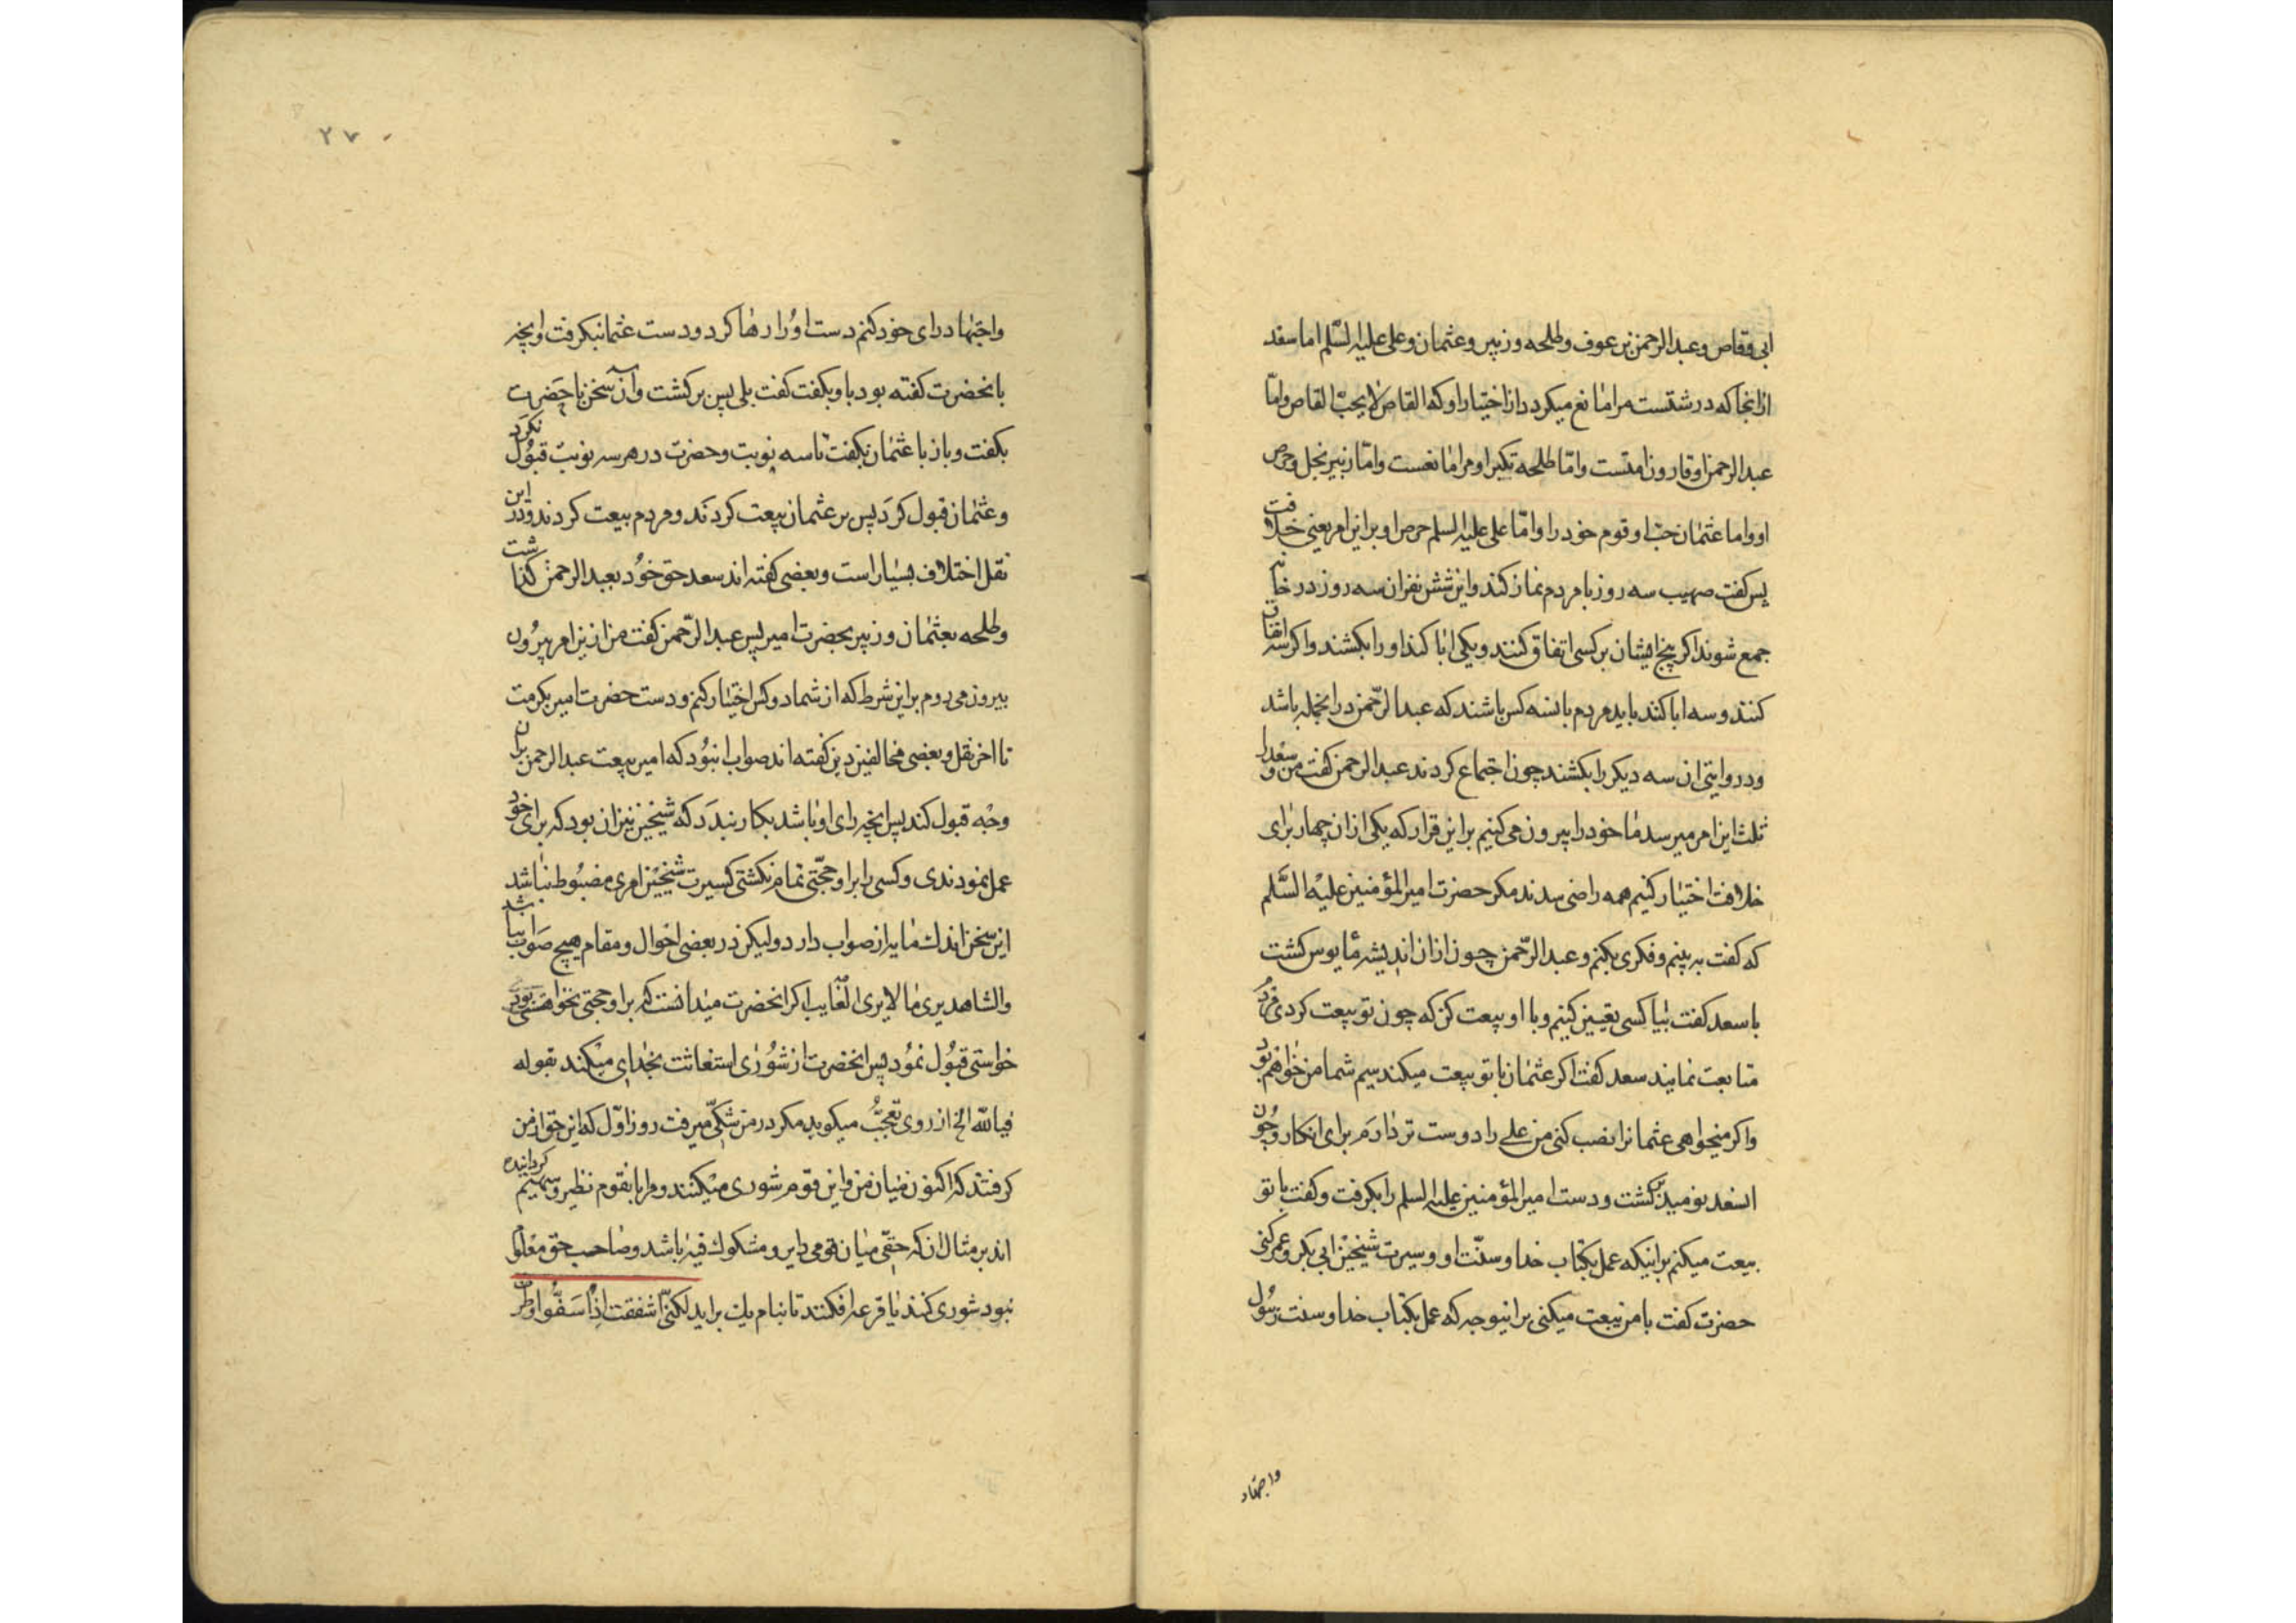 ابی وقاص و عبدالرحمن بن عوف و طلحه و زبیر و عثمان و علی علیه السّلم اما سعد
ازانجا که درشتست مر امانع میکردد از اختیار او که القاص لا یحبّ القاص و امّا
عبدالرحمن او قارون امتست و امّا طلحه تکبر او مرا مانعست و امّا زبیر بخل و حرص
او و اما عثمان حبّ او قوم خود را و امّا علی علیه السلم حرص او بر این امر یعنی خلافت
پس کفت صهیب سه روز با مردم نماز کند و این شش نفر ان سه روز در خانه
جمع شوند اکر پنج ایشان بر کسی اتفاق کنند و یکی ابا کند او را بکشند و اکر سه اتفاق
کنند و سه ابا کنند باید مردم باسه کس باشند که عبدالرّحمن در انجمله باشد
و در روایتی ان سه دیکر را بکشند چون اجتماع کردند عبدالرحمن کفت من و سعد را
ثلث این امر میرسد ما خود را بیرون می کنیم بر این قرار که یکی از ان چهار برای
خلافت اختیار کنیم همه راضی شدند مکر حضرت امیرالمؤمنین علیه السّلم
که کفت به بینم و فکری بکنم و عبدالرّحمن چون از ان اندیشه مأیوس کشت
با سعد کفت بیا کسی تعیین کنیم و با او بیعت کن که چون تو بیعت کردی مردم
متابعت نمایند سعد کفت اکر عثمان با تو بیعت میکند سیم شما من خواهم بود
و اکر میخواهی عثمانرا نصب کنی من علی را دوست تر دارم برای اینکار و چون
از سعد نومید کشت و دست امیرالمؤمنین علیه السلم را بکرفت و کفت با تو
بیعت میکنم بر اینکه عمل بکتاب خدا و سنّت او و سیرت شیخین ابی بکر و عمر کنی
حضرت کفت با من بیعت میکنی بر اینوجه که عمل بکتاب خدا و سنت رسول
واجتهاد
۲۷
و اجتهاد رای خود کنم دست او را رها کرد و دست عثمان بکرفت و انچه
بانحضرت کفته بود باو بکفت کفت بلی پس بر کشت و آن سخن با حضرت
بکفت و باز با عثمان بکفت تا سه نوبت و حضرت در هر سه نوبت قبول نکرد
و عثمان قبول کرد پس بر عثمان بیعت کردند و مردم بیعت کردند و در این
نقل اختلاف بسیار است و بعضی کفته اند سعد حق خود بعبدالرحمن کذاشت
و طلحه بعثمان و زبیر بحضرت امیر پس عبدالرّحمن کفت من از این امر بیرون
بیرون می روم بر این شرط که از شما دو کس اختیار کنم و دست حضرت امیر بکرفت
تا اخر نقل و بعضی مخالفین دین کفته اند صواب انبود که امیر بیعت عبدالرحمن بر ان
وجه قبول کند پس انچه رای او باشد بکار بندد که شیخین نیز ان بود که برای خود
عمل نمودندی و کسی را بر او حجّتی تمام نکشتی که سیرت شیخین امری مضبوط نباشد
این سخن اندك مایه از صواب دارد ولیکن در بعضی احوال و مقام هیچ صواب نباشد
و الشاهد یری ما لا یری الغایب اکر انحضرت میدانست که بر او حجتی نخواهد بود
خواستی قبول نمود پس انحضرت از شوری استغاثت بخدای میکند بقوله
فیا للّه الخ از روی تعجّب میکوید مکر در من شکّی میرفت روز اوّل که این حق از من
کرفتند که اکنون میان من و این قوم شوری میکنند و مرا با نقوم نظیر و سهیم کردانیده
اند بر مثال ان که حقی میان قومی دایر و مشکوك فیه باشد و صاحب حق معلوم
نبود شوری کنند یا قرعه افکنند تا بنام یك براید لکنّی اشفقت اذ اسفّوا و طرت